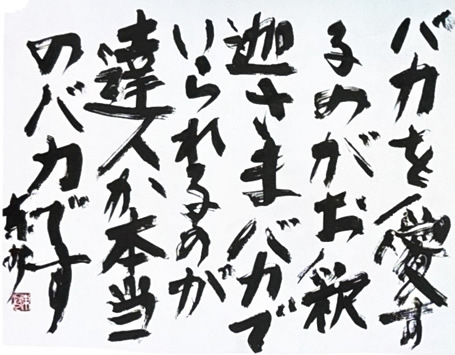 バカを愛す
るのがお釈
迦さまバカで
いられるのが
達人か本当
のバカです